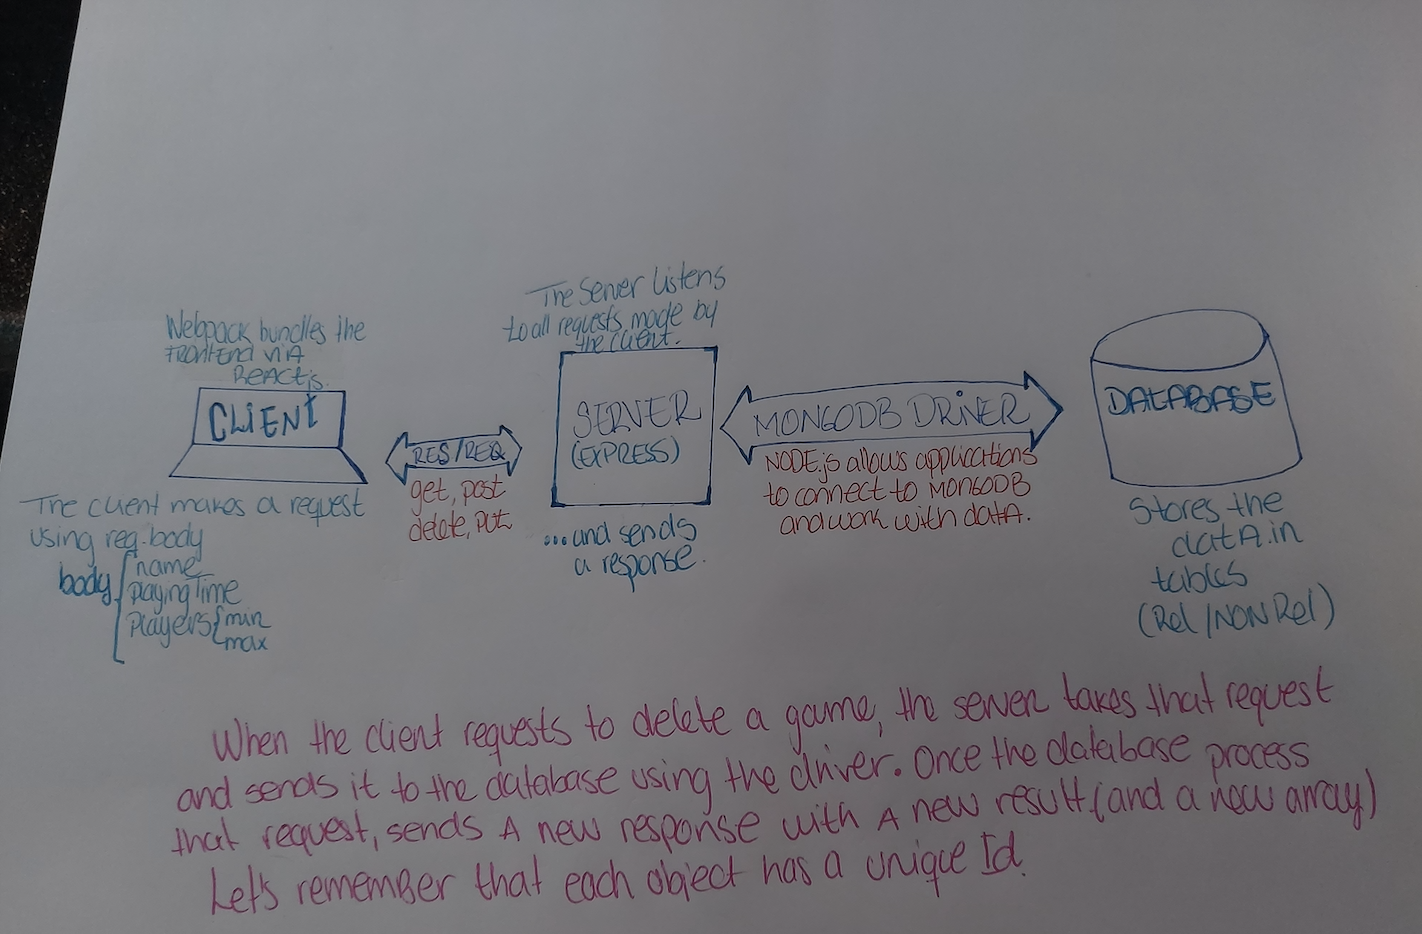 Webpack bundles the
frontend via
Reactjs.
CLIENT
The client makes a request
using req.body
body
name
playingTime
Players
min
max
RES/REQ
get, post
delete, put
The Server Listens
to all requests made by
the client.
SERVER
(EXPRESS)
...and sends
a response.
MONGODB DRIVER
NODE.js allows applications
to connect to MONGODB
and work with data.
DATABASE
Stores the
data in
tables
(Rel/NON Rel)
When the client requests to delete a game, the server takes that request
and sends it to the database using the driver. Once the database process
that request, sends A new response with A new result (and a new array)
Let's remember that each object has a unique Id.